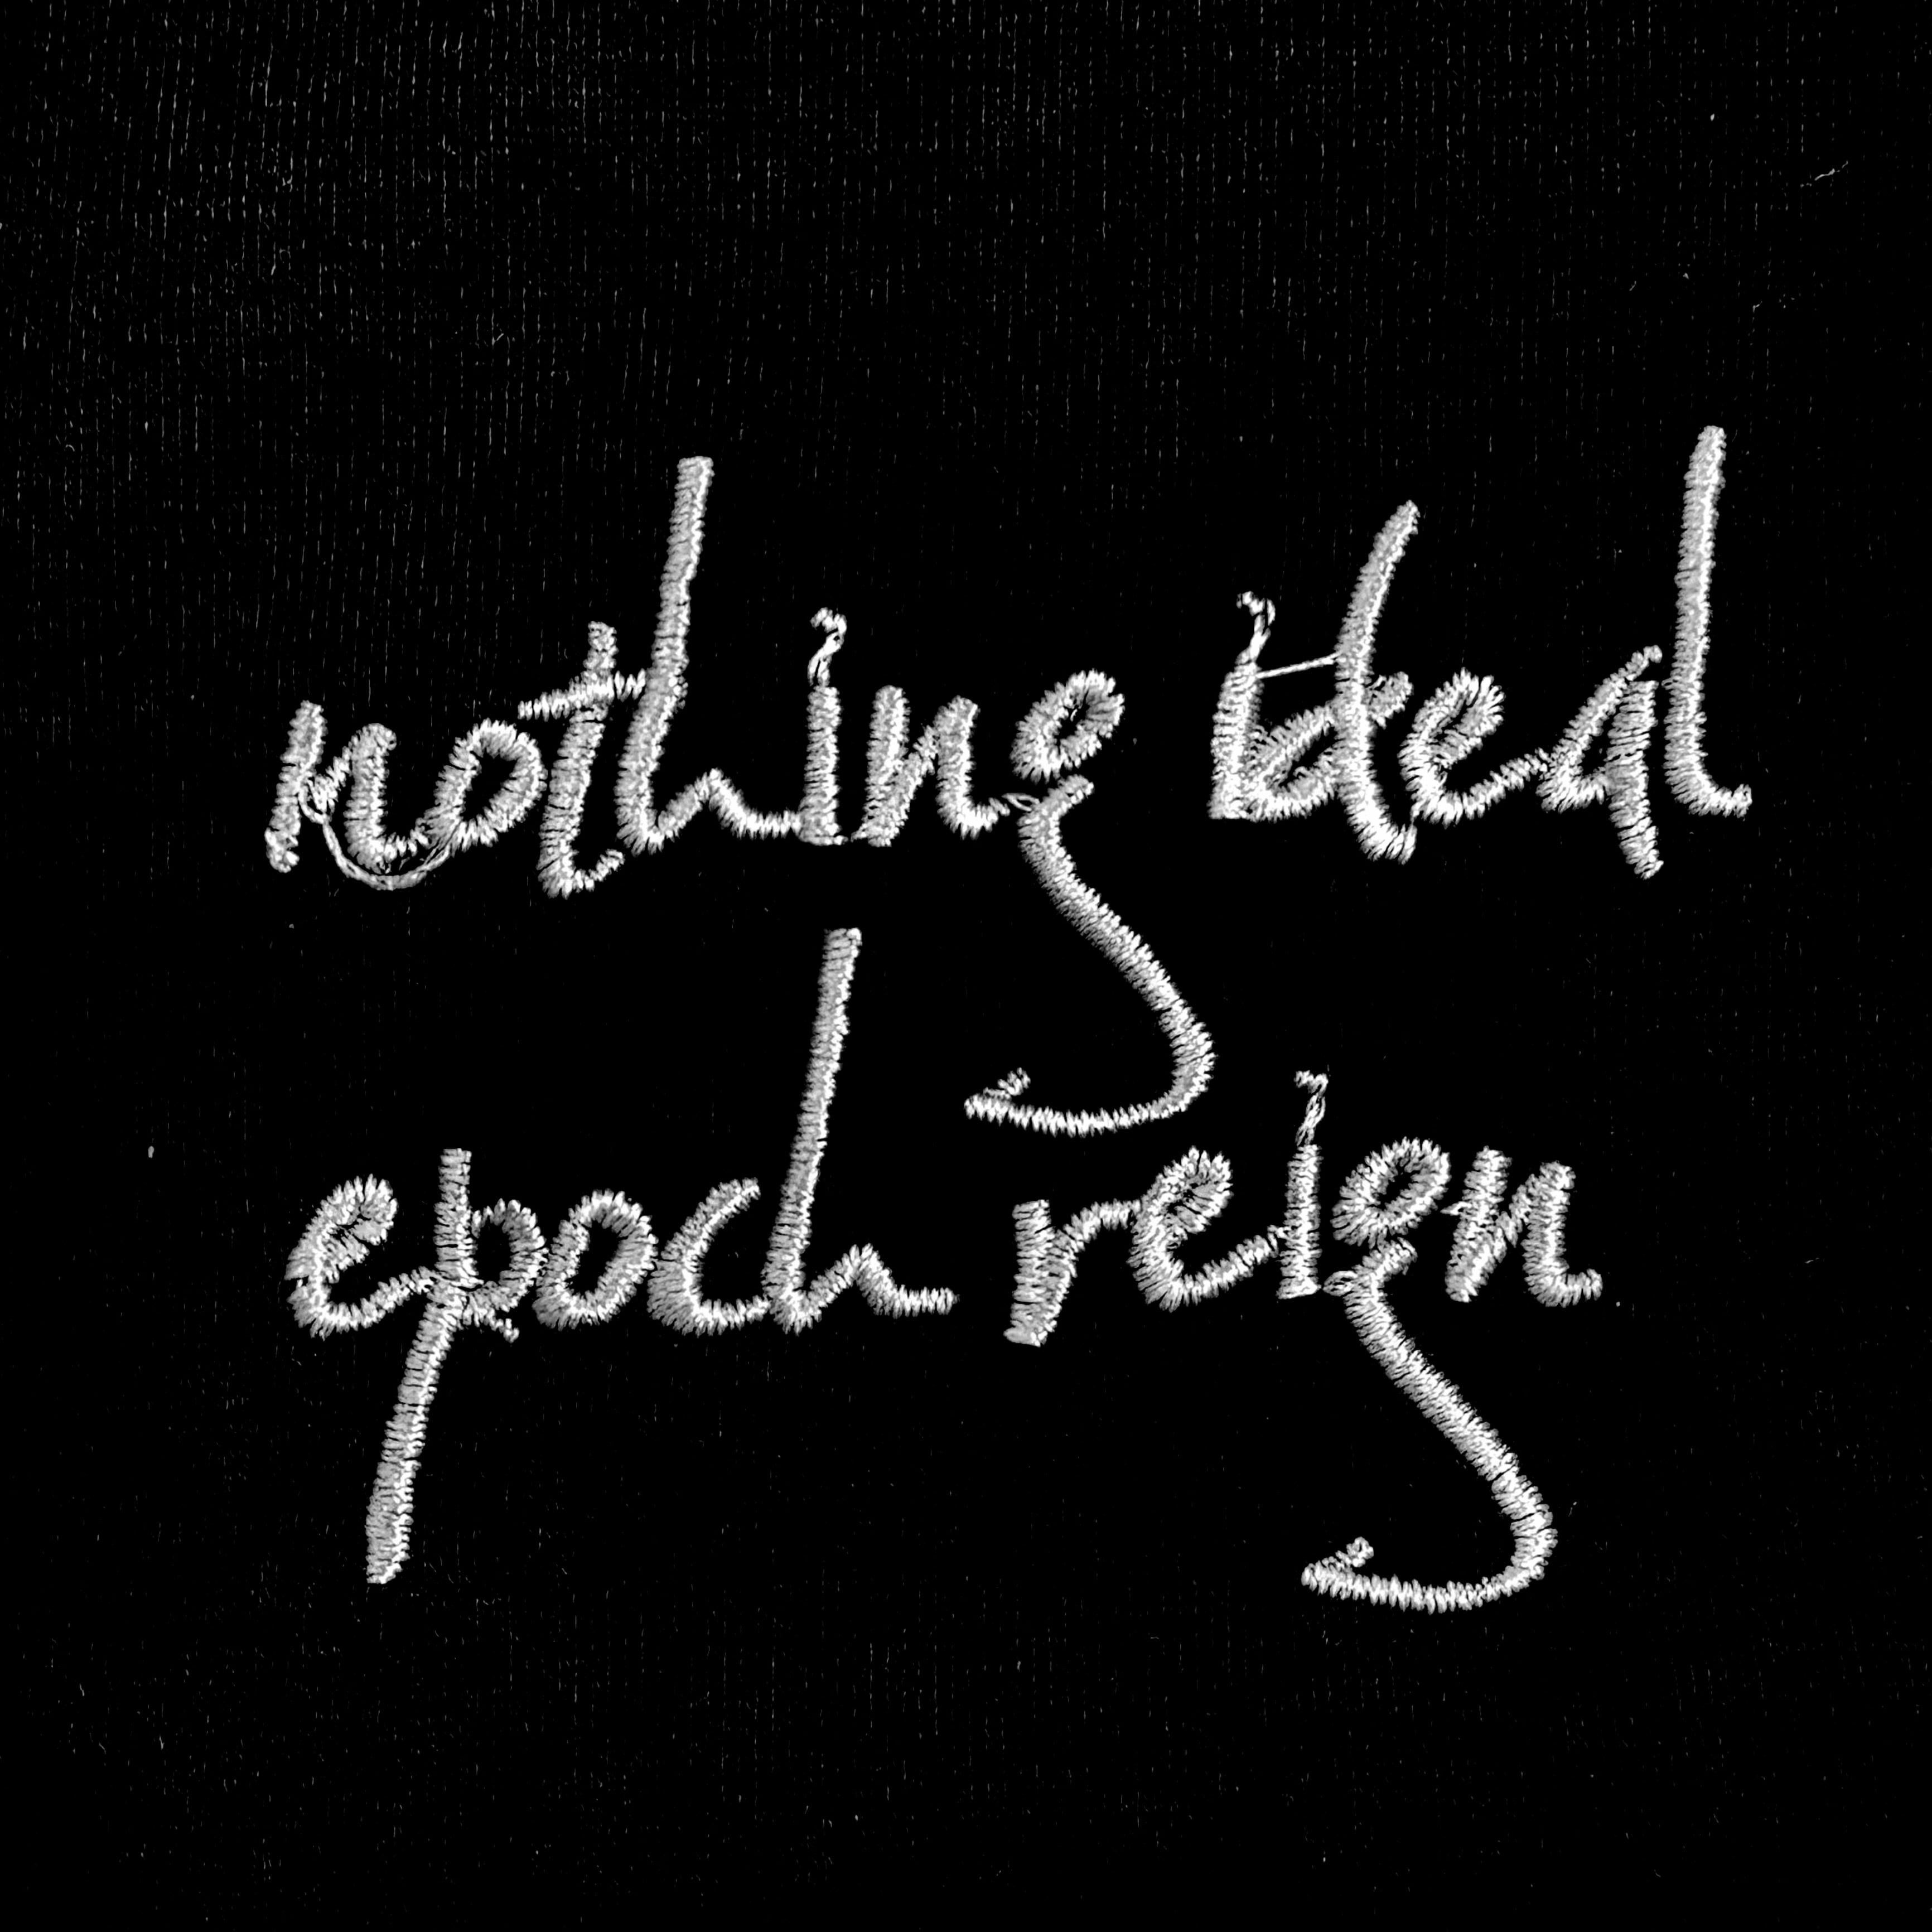 nothing ideal
epoch reign